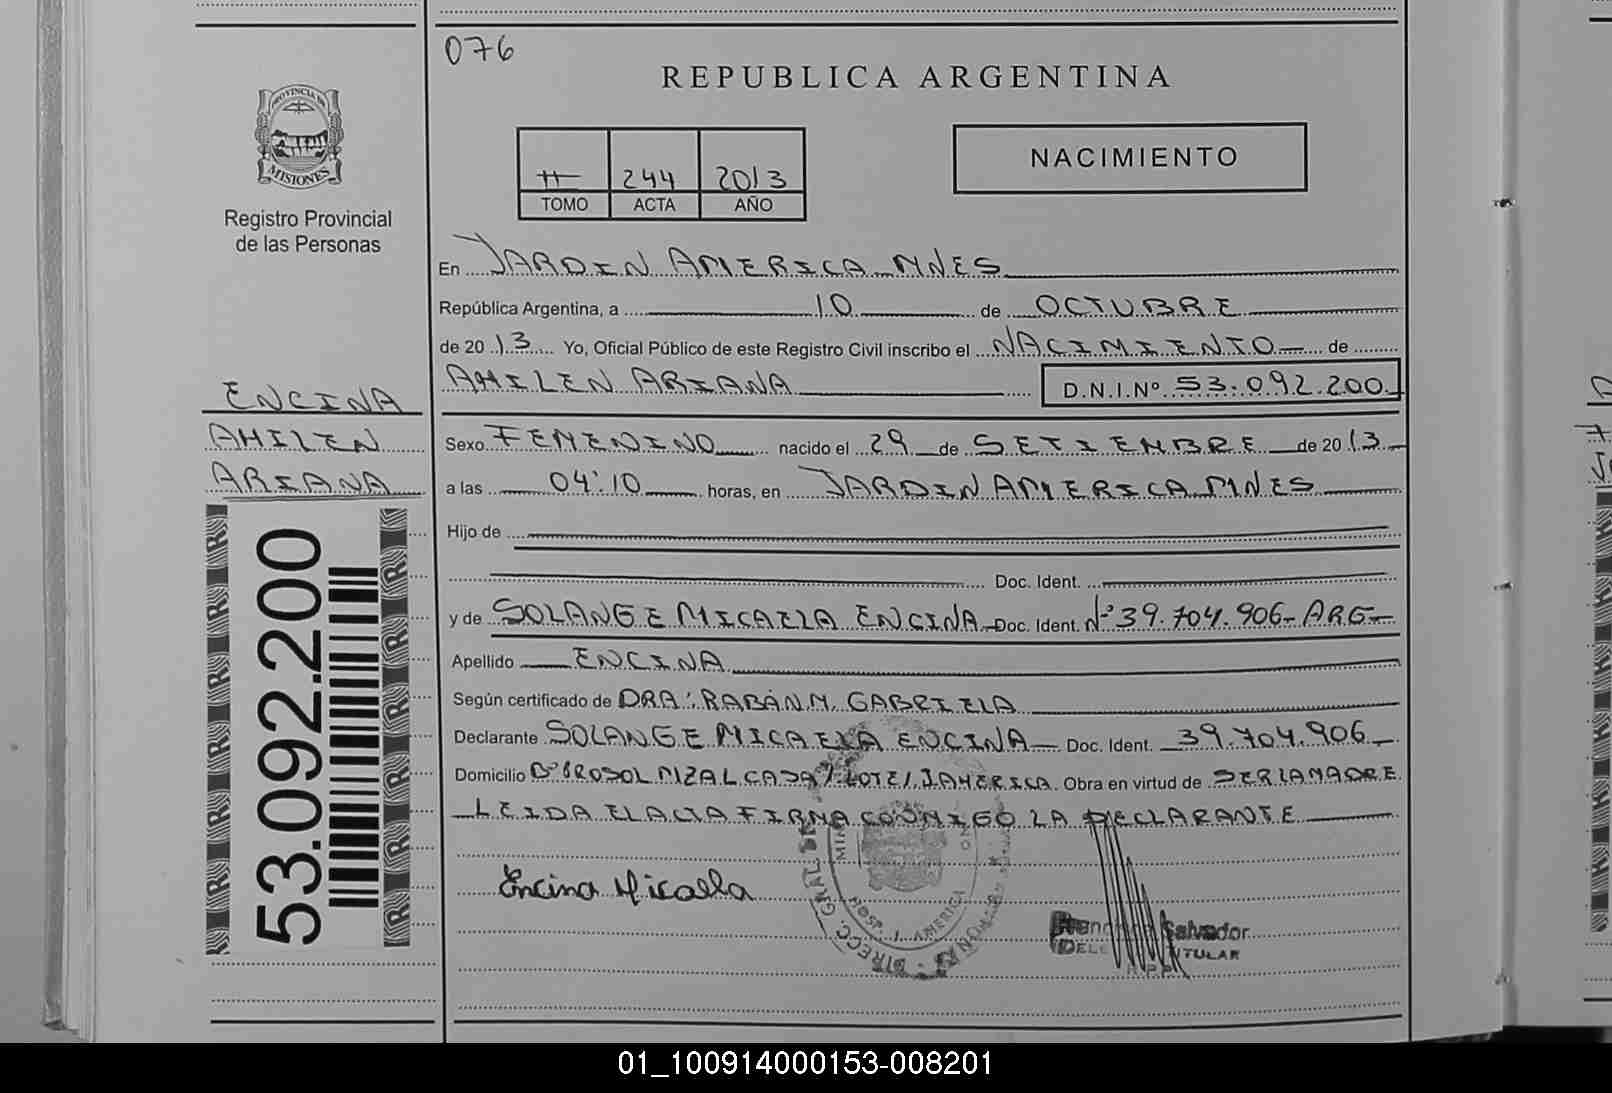 076
REPUBLICA ARGENTINA
PROVINCIA DE
MISIONES
Registro Provincial
de las Personas
II 244 2013
TOMO ACTA AÑO
NACIMIENTO
En JARDIN AMERICA MNES
República Argentina, a 10 de OCTUBRE
de 2013 Yo, Oficial Público de este Registro Civil inscribo el NACIMIENTO de
AHILEN ARIANA D.N.I.Nº 53.092.200.
ENCINA
AHILEN
ARIANA
53.092.200
Sexo FEMENINO nacido el 29 de SETIEMBRE de 2013
a las 04:10 horas, en JARDIN AMERICA MNES
Hijo de
Doc. Ident.
y de SOLANGE MICAELA ENCINA Doc. Ident. Nº 39.704.906-ARG-
Apellido ENCINA
Según certificado de DRA: RABÁN M. GABRIELA
Declarante SOLANGE MICAELA ENCINA Doc. Ident. 39.704.906
Domicilio Bº CASA LOTE J AMERICA. Obra en virtud de SER LA MADRE
LEIDA EL ACTA FIRMA CONMIGO LA DECLARANTE
Encina Micaela
DIRECC. GRAL. DE
HOSP. J. AMERICA
Salvador
TITULAR
R.P.P.
01_100914000153-008201